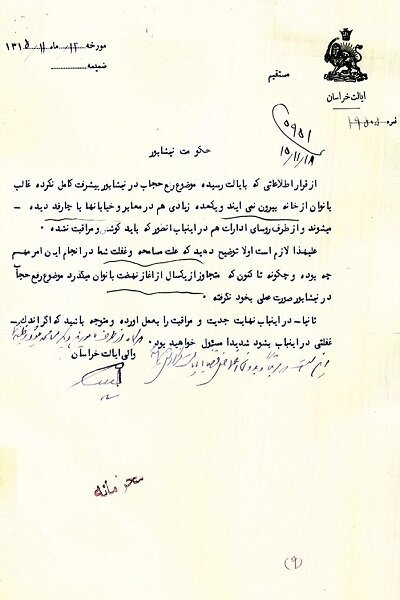 مورخه ۱۲ ماه ۱۱ ۱۳۱۵
ضمیمه
مستقیم
ایالت خراسان
نمره
۵۹۵۱
۱۵/۱۱/۱۸
حکومت نیشابور
از قرار اطلاعاتی که بایالت رسیده موضوع رفع حجاب در نیشابور پیشرفت کامل نکرده غالب
بانوان از خانه بیرون نمی آیند و یکعده زیادی هم در معابر و خیابانها با چارقد دیده –
میشوند و از طرف روسای ادارات هم در اینباب انطور که باید کوشش و مراقبت نشده ۰
علیهذا لازم است اولا توضیح دهید که علت مسامحه و غفلت شما در انجام این امر مهم
چه بوده و چگونه تا کنون که متجاوز از یکسال از اغاز نهضت بانوان میگذرد موضوع رفع حجاب
در نیشابور صورت عملی بخود نگرفته ۰
ثانیا – در اینباب نهایت جدیت و مراقبت را بعمل اورده و متوجه باشید که اگر اندک –
غفلتی در اینباب بشود شدیدا مسئول خواهید بود ۰
والی ایالت خراسان
محرمانه
(۹)